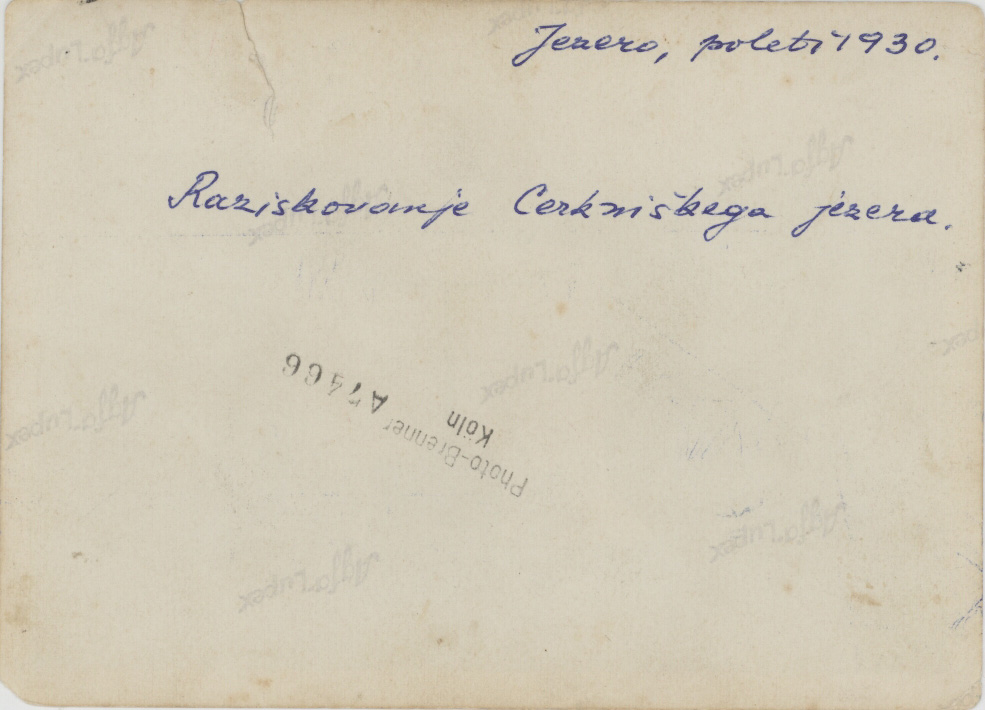 Jezero, poleti 1930.
Raziskovanje Cerkniškega jezera.
Photo-Brenner
Köln
A7466
Agfa Lupex
Agfa Lupex
Agfa Lupex
Agfa Lupex
Agfa Lupex
Agfa Lupex